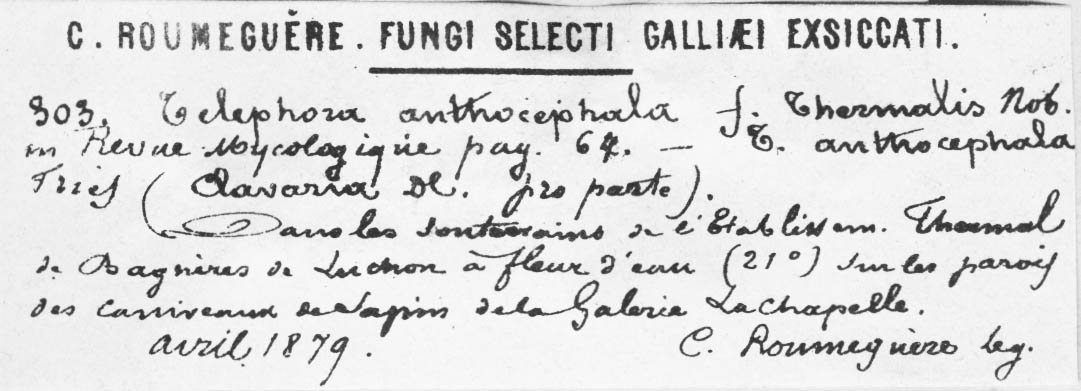 C. ROUMEGUÈRE. FUNGI SELECTI GALLIÆI EXSICCATI.
303. Telephora anthocephala f. Thermalis Nob.
in Revue Mycologique pag. 67. — T. anthocephala
Fries (Clavaria DC. pro parte).
Dans les souterrains de l'Etablissem. Thermal
de Bagnères de Luchon à fleur d'eau (21°) sur les parois
des caniveaux de Sapin de la Galerie Lachapelle.
avril 1879. C. Roumeguère leg.